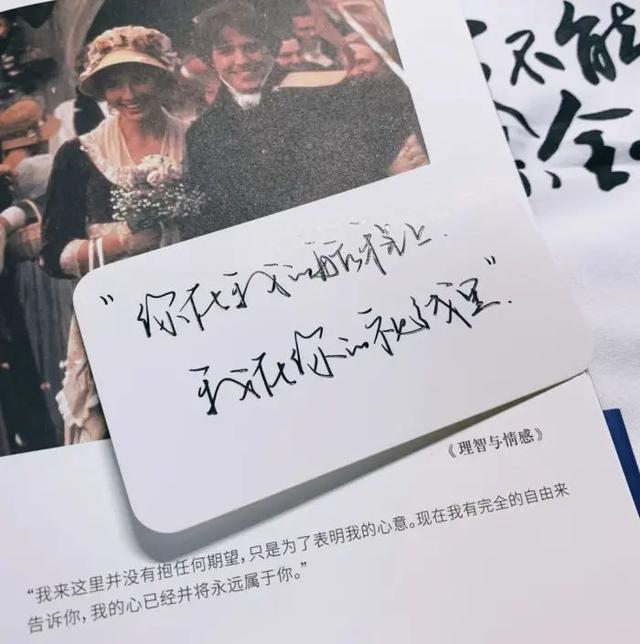 不能
全
"你在我的航线上.
我在你的视线里".
《理智与情感》
“我来这里并没有抱任何期望，只是为了表明我的心意。现在我有完全的自由来
告诉你，我的心已经并将永远属于你。”